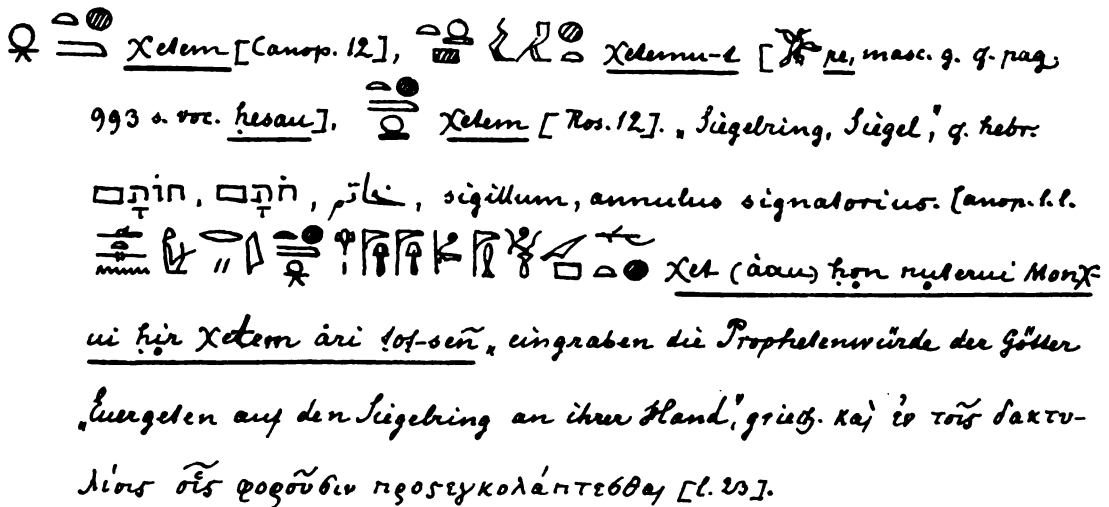 χetem [Canop. 12], χetemu-t [pe, masc. g. cf. pag.
993 s. voc. ḥesau], χetem [Ros. 12]. „Siegelring, Siegel", cf. hebr.
חוֹתָם, חֹתָם, خاتم, sigillum, annulus signatorius. Canop. l. l.
χet (áau) ḥon nuterui Monχ-
ui ḥir χetem ári ṭot-sen „eingraben die Prophetenwürde der Götter
„Euergeten auf den Siegelring an ihrer Hand", griech. καὶ ἐν τοῖς δακτυ-
λίοις οἷς φοροῦσιν προςεγκολάπτεσθαι [l. 23].